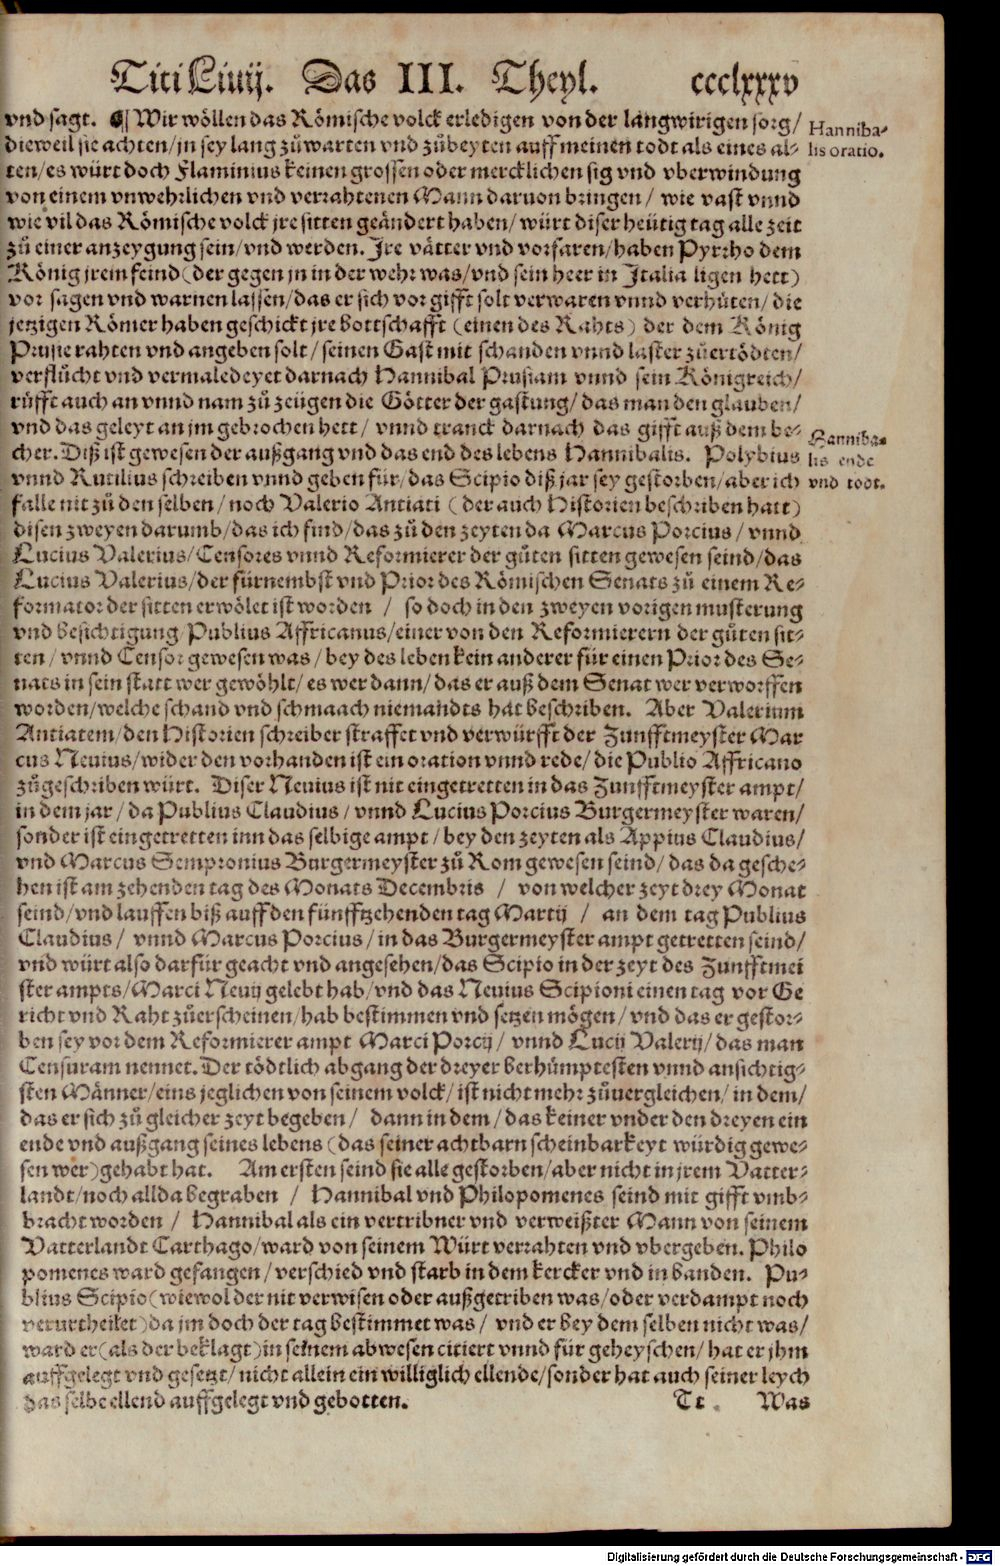 Titi Liuij. Das III. Theyl. ccclxxxv
vnd sagt. ¶ Wir wöllen das Römische volck erledigen von der langwirigen sorg/
dieweil sie achten/jn sey lang zů warten vnd zů beyten auff meinen todt als eines al-
ten/es würt doch Flaminius keinen grossen oder mercklichen sig vnd vberwindung
von einem vnwehrlichen vnd verrahtenen Mann daruon bringen/ wie vast vnnd
wie vil das Römische volck jre sitten geändert haben/ würt diser heütig tag alle zeit
zů einer anzeygung sein/vnd werden. Jre vätter vnd vorfaren/haben Pyrrho dem
König jrem feind (der gegen jn in der wehr was/vnd sein heer in Italia ligen hett)
vor sagen vnd warnen lassen/das er sich vor gifft solt verwaren vnnd verhüten/ die
jetzigen Römer haben geschickt jre bottschafft (einen des Rahts) der dem König
Prusie rahten vnd angeben solt/ seinen Gast mit schanden vnnd laster zů ertödten/
verflůcht vnd vermaledeyet darnach Hannibal Prusiam vnnd sein Königreich/
rüfft auch an vnnd nam zů zeügen die Götter der gastung/ das man den glauben/
vnd das geleyt an jm gebrochen hett/ vnnd tranck darnach das gifft auß dem be-
cher. Diß ist gewesen der außgang vnd das end des lebens Hannibalis. Polybius
vnnd Rutilius schreiben vnnd geben für/ das Scipio diß jar sey gestorben/aber ich
falle nit zů den selben/ noch Valerio Antiati (der auch Historien beschriben hatt)
disen zweyen darumb/das ich find/das zů den zeyten da Marcus Porcius/ vnnd
Lucius Valerius/Censores vnnd Reformierer der gůten sitten gewesen seind/das
Lucius Valerius/der fürnembst vnd Prior des Römischen Senats zů einem Re-
formator der sitten erwölet ist worden / so doch in den zweyen vorigen musterung
vnd besichtigung Publius Affricanus/einer von den Reformierern der gůten sit-
ten/ vnnd Censor gewesen was/ bey des leben kein anderer für einen Prior des Se-
nats in sein statt wer gewöhlt/ es wer dann/ das er auß dem Senat wer verworffen
worden/welche schand vnd schmaach niemandts hat beschriben. Aber Valerium
Antiatem/den Historien schreiber straffet vnd verwürfft der Zunfftmeyster Mar
cus Neuius/wider den vorhanden ist ein oration vnnd rede/ die Publio Affricano
zůgeschriben würt. Diser Neuius ist nit eingetretten in das Zunfftmeyster ampt/
in dem jar/ da Publius Claudius/ vnnd Lucius Porcius Burgermeyster waren/
sonder ist eingetretten inn das selbige ampt/ bey den zeyten als Appius Claudius/
vnd Marcus Sempronius Burgermeyster zů Rom gewesen seind/ das da gesche-
hen ist am zehenden tag des Monats Decembris / von welcher zeyt drey Monat
seind/vnd lauffen biß auff den fünfftzehenden tag Martij / an dem tag Publius
Claudius/ vnnd Marcus Porcius/in das Burgermeyster ampt getretten seind/
vnd würt also darfür geacht vnd angesehen/das Scipio in der zeyt des Zunfftmei
ster ampts/Marci Neuij gelebt hab/vnd das Neuius Scipioni einen tag vor Ge
richt vnd Raht zů erscheinen/hab bestimmen vnd setzen mögen/ vnd das er gestor-
ben sey vor dem Reformierer ampt Marci Porcij/ vnnd Lucij Valerij/ das man
Censuram nennet. Der tödtlich abgang der dreyer berhümptesten vnnd ansichtig-
sten Männer/eins jeglichen von seinem volck/ ist nicht mehr zů vergleichen/ in dem/
das er sich zů gleicher zeyt begeben/ dann in dem/das keiner vnder den dreyen ein
ende vnd außgang seines lebens (das seiner achtbarn scheinbarkeyt würdig gewe-
sen wer) gehabt hat. Am ersten seind sie alle gestorben/aber nicht in jrem Vatter-
landt/noch allda begraben / Hannibal vnd Philopomenes seind mit gifft vmb-
bracht worden / Hannibal als ein vertribner vnd verweißter Mann von seinem
Vatterlandt Carthago/ward von seinem Würt verrahten vnd vbergeben. Philo
pomenes ward gefangen/verschied vnd starb in dem kercker vnd in banden. Pu-
blius Scipio (wiewol der nit verwisen oder außgetriben was/oder verdampt noch
verurtheilet) da jm doch der tag bestimmet was/ vnd er bey dem selben nicht was/
ward er (als der beklagt) in seinem abwesen citiert vnnd für geheyschen/ hat er jhm
auffgelegt vnd gesetzt/ nicht allein ein williglich ellende/sonder hat auch seiner leych
das selbe ellend auffgelegt vnd gebotten.
Tt . Was
Hanniba-
lis oratio.
Hanniba-
lis ende
vnd todt.
Digitalisierung gefördert durch die Deutsche Forschungsgemeinschaft - DFG